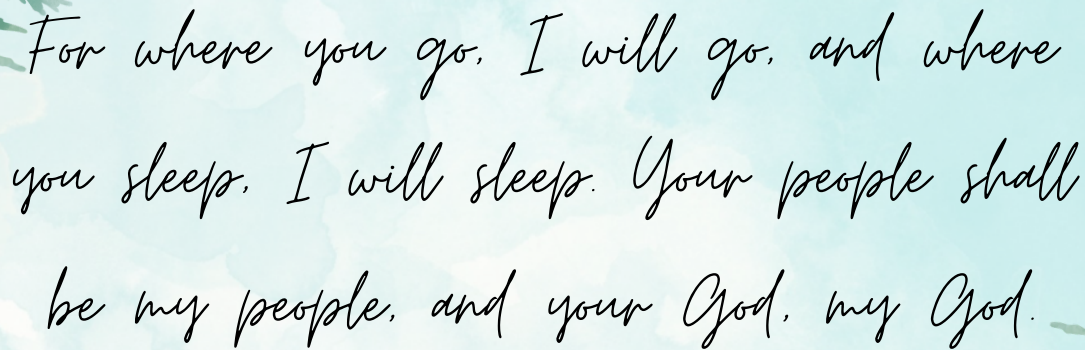 For where you go, I will go, and where
you sleep, I will sleep. Your people shall
be my people, and your God, my God.